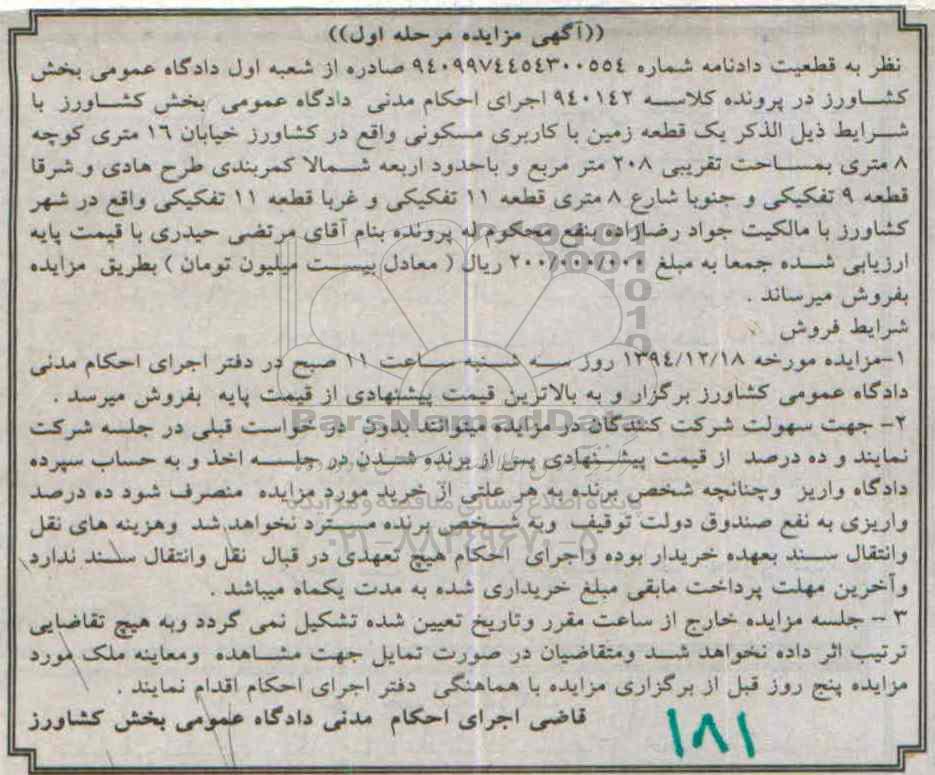 ((آگهی مزایده مرحله اول))
نظر به قطعیت دادنامه شماره ۹٤۰۹۹۷٤٤٥٤۳۰۰٥٥٤ صادره از شعبه اول دادگاه عمومی بخش
کشاورز در پرونده کلاسه ۹٤۰۱٤۲ اجرای احکام مدنی دادگاه عمومی بخش کشاورز با
شرایط ذیل الذکر یک قطعه زمین با کاربری مسکونی واقع در کشاورز خیابان ۱٦ متری کوچه
۸ متری بمساحت تقریبی ۲۰۸ متر مربع و باحدود اربعه شمالا کمربندی طرح هادی و شرقا
قطعه ۹ تفکیکی و جنوبا شارع ۸ متری قطعه ۱۱ تفکیکی و غربا قطعه ۱۱ تفکیکی واقع در شهر
کشاورز با مالکیت جواد رضازاده بنفع محکوم له پرونده بنام آقای مرتضی حیدری با قیمت پایه
ارزیابی شده جمعا به مبلغ ۲۰۰/۰۰۰/۰۰۱ ریال ( معادل بیست میلیون تومان ) بطریق مزایده
بفروش میرساند .
شرایط فروش
۱-مزایده مورخه ۱۳۹٤/۱۲/۱۸ روز سه شنبه ساعت ۱۱ صبح در دفتر اجرای احکام مدنی
دادگاه عمومی کشاورز برگزار و به بالاترین قیمت پیشنهادی از قیمت پایه بفروش میرسد .
ParsNamadData
۲- جهت سهولت شرکت کنندگان در مزایده میتوانند بدون در خواست قبلی در جلسه شرکت
نمایند و ده درصد از قیمت پیشنهادی پس از برنده شدن در جلسه اخذ و به حساب سپرده
دادگاه واریز وچنانچه شخص برنده به هر علتی از خرید مورد مزایده منصرف شود ده درصد
پایگاه اطلاع رسانی مناقصه و مزایده
واریزی به نفع صندوق دولت توقیف وبه شخص برنده مسترد نخواهد شد وهزینه های نقل
۰۲۱-۸۸۳۴۹۶۷۰-۵
وانتقال سند بعهده خریدار بوده واجرای احکام هیچ تعهدی در قبال نقل وانتقال سند ندارد
وآخرین مهلت پرداخت مابقی مبلغ خریداری شده به مدت یکماه میباشد .
۳ - جلسه مزایده خارج از ساعت مقرر وتاریخ تعیین شده تشکیل نمی گردد وبه هیچ تقاضایی
ترتیب اثر داده نخواهد شد ومتقاضیان در صورت تمایل جهت مشاهده ومعاینه ملک مورد
مزایده پنج روز قبل از برگزاری مزایده با هماهنگی دفتر اجرای احکام اقدام نمایند .
قاضی اجرای احکام مدنی دادگاه عمومی بخش کشاورز
۱۸۱